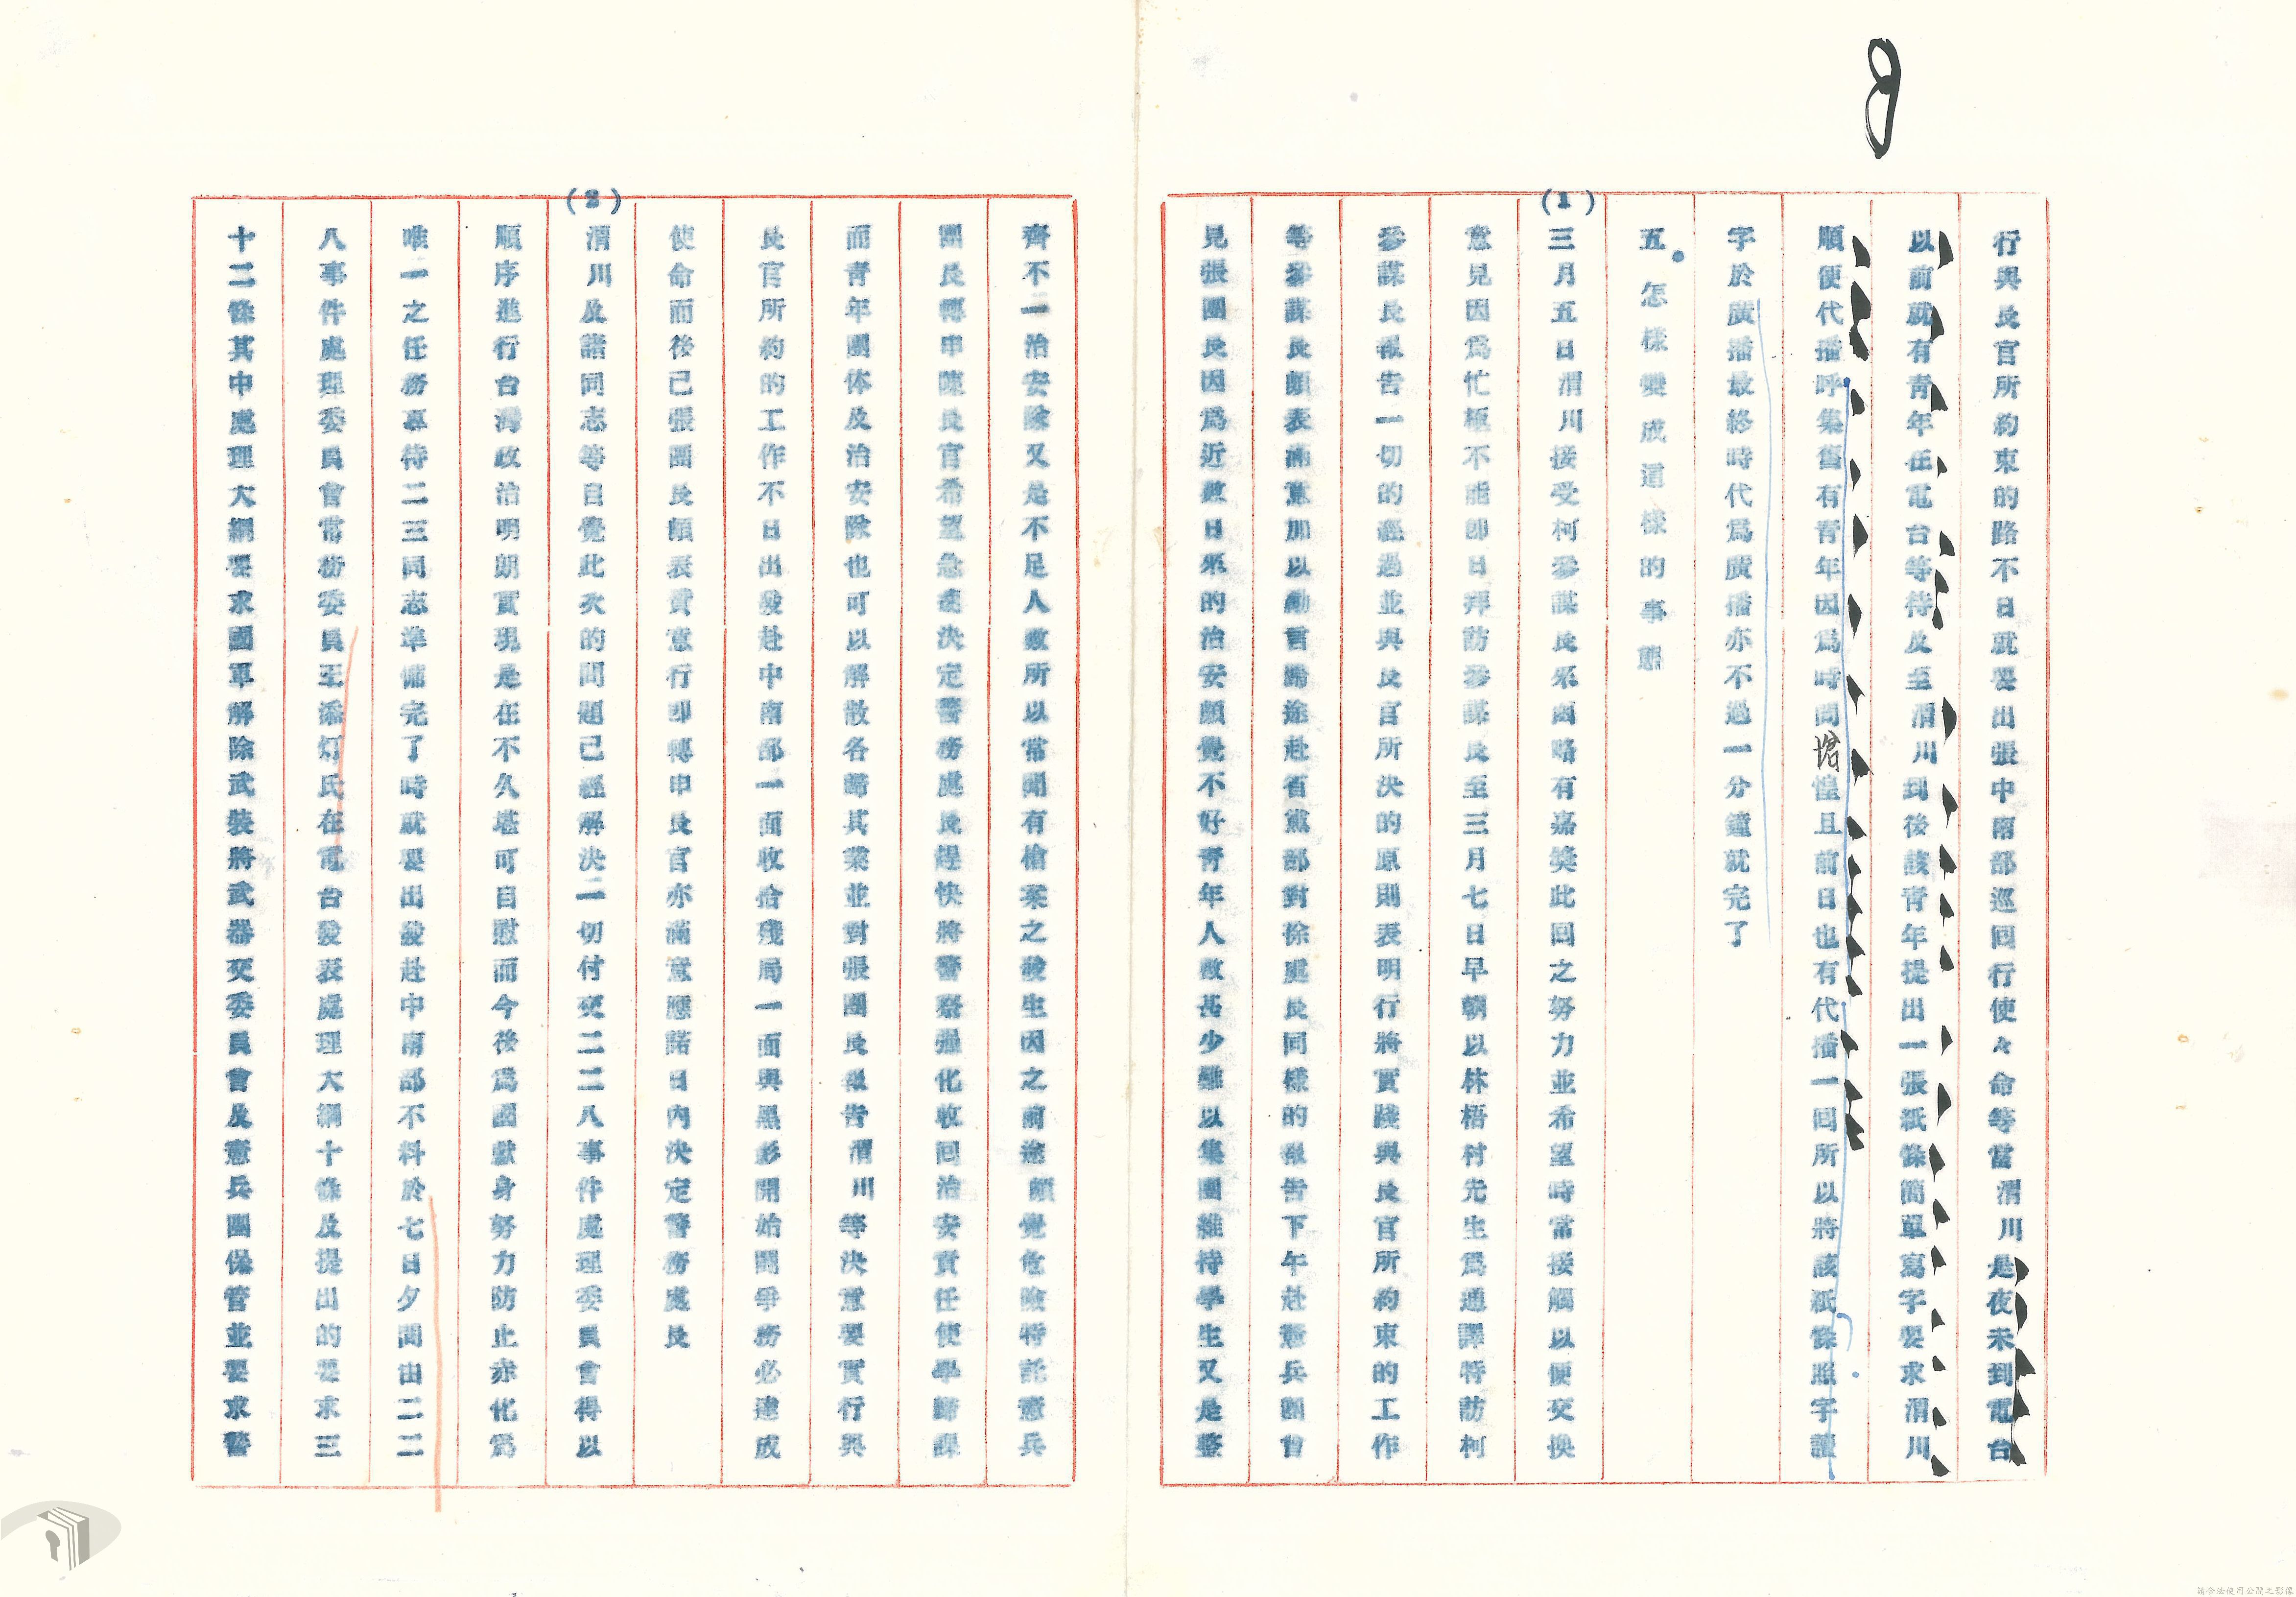 8
行與長官所約束的路不日就要出張中南部巡回行使々命等當渭川是夜未到電台
以前就有青年在電台等待及至渭川到後該青年提出一張紙條簡單寫字要求渭川
順便代播呼集舊有青年因爲時間愴惶且前日也有代播一回所以將該紙條照字讀
字於廣播最終時代爲廣播亦不過一分鐘就完了
五.怎樣變成這樣的事態
(1)
三月五日渭川接受柯參謀長來函略有嘉獎此回之努力並希望時常接觸以便交換
意見因爲忙極不能即日拜訪參謀長至三月七日早朝以林梧村先生爲通譯特訪柯
參謀長報告一切的經過並與長官所決的原則表明行將實踐與長官所約束的工作
等參謀長頗表滿意加以勵言歸途赴省黨部對徐處長同樣的報告下午赴憲兵團會
見張團長因爲近數日來的治安頗覺不好青年人數甚少雖以集團維持學生又是整
齊不一治安隊又是不足人數所以常聞有槍案之發生因之前途頗覺危險特託憲兵
團長轉申陳長官希望急速決定警務處長趕快將警察强化收回治安責任使學歸課
而青年團体及治安隊也可以解散各歸其業並對張團長報告渭川等決意要實行與
長官所約的工作不日出發赴中南部一面收拾殘局一面與黑影開始鬪爭務必達成
使命而後已張團長頗表贊意行即轉申長官亦滿意應諾日內決定警務處長
(2)
渭川及諸同志等自覺此次的問題已經解決一切付交二二八事件處理委員會得以
順序進行台灣政治明朗實現是在不久堪可自慰而今後爲國獻身努力防止赤化爲
唯一之任務專待二三同志準備完了時就要出發赴中南部不料於七日夕間由二二
八事件處理委員會常務委員王添灯氏在電台發表處理大綱十條及提出的要求三
十二條其中處理大綱要求國軍解除武裝將武器交委員會及憲兵團保管並要求警
請合法使用公開之影像